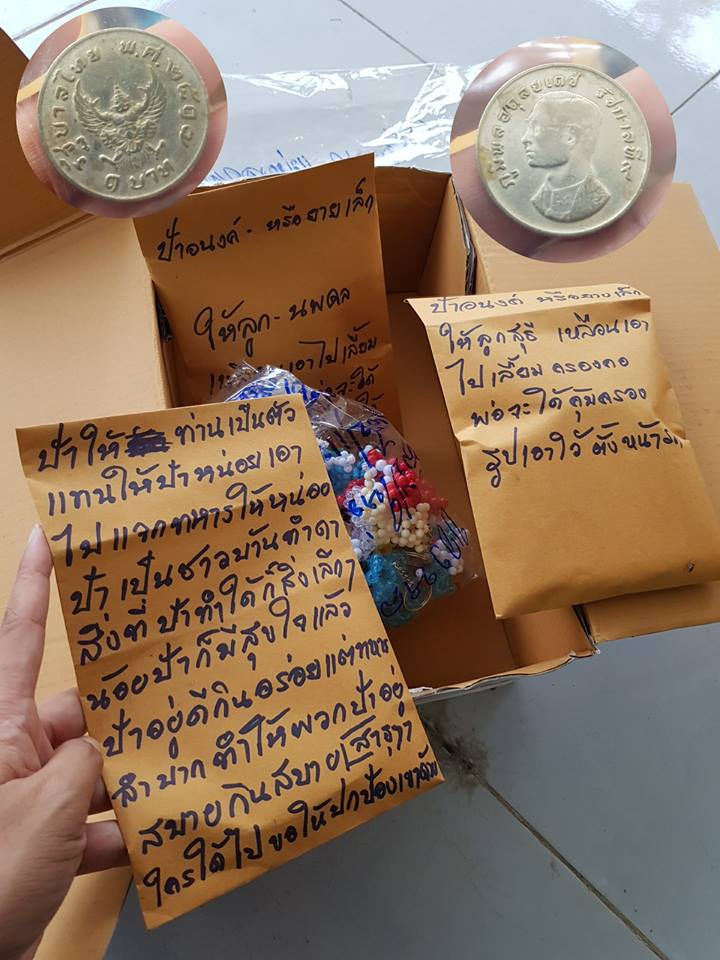 รัฐบาลไทย พ.ศ.๒๕๑๗
๑ บาท
ภูมิพลอดุลยเดช รัชกาลที่๙
ป้าอนงค์ - หรือยายเล็ก
ให้ลูก - นพดล
เอาไปเลี้ยม
ป้าอนงค์ หรือยายเล็ก
ให้ลูกสุธี เหลือนเอา
ไปเลี้ยมครองคอ
พ่อจะได้คุ้มครอง
รูปเอาใว้ตั้งหน้า
ป้าให้ ท่านเป็นตัว
แทนให้ป้าหน่อยเอา
ไปแจกทหารให้หน่อย
ป้าเป็นชาวบ้านทำดา
สิ่งที่ป้าทำใด้ก็สิ่งเล็กๆ
น้อยป้าก็มีสุขใจแล้ว
ป้าอยู่ดีกินอร่อยแต่ทหาร
ลำบากทำให้พวกป้าอยู่
สบายกินสบาย สาธุๆๆ
ใครใด้ไปขอให้ปกป้องเขาด้วย